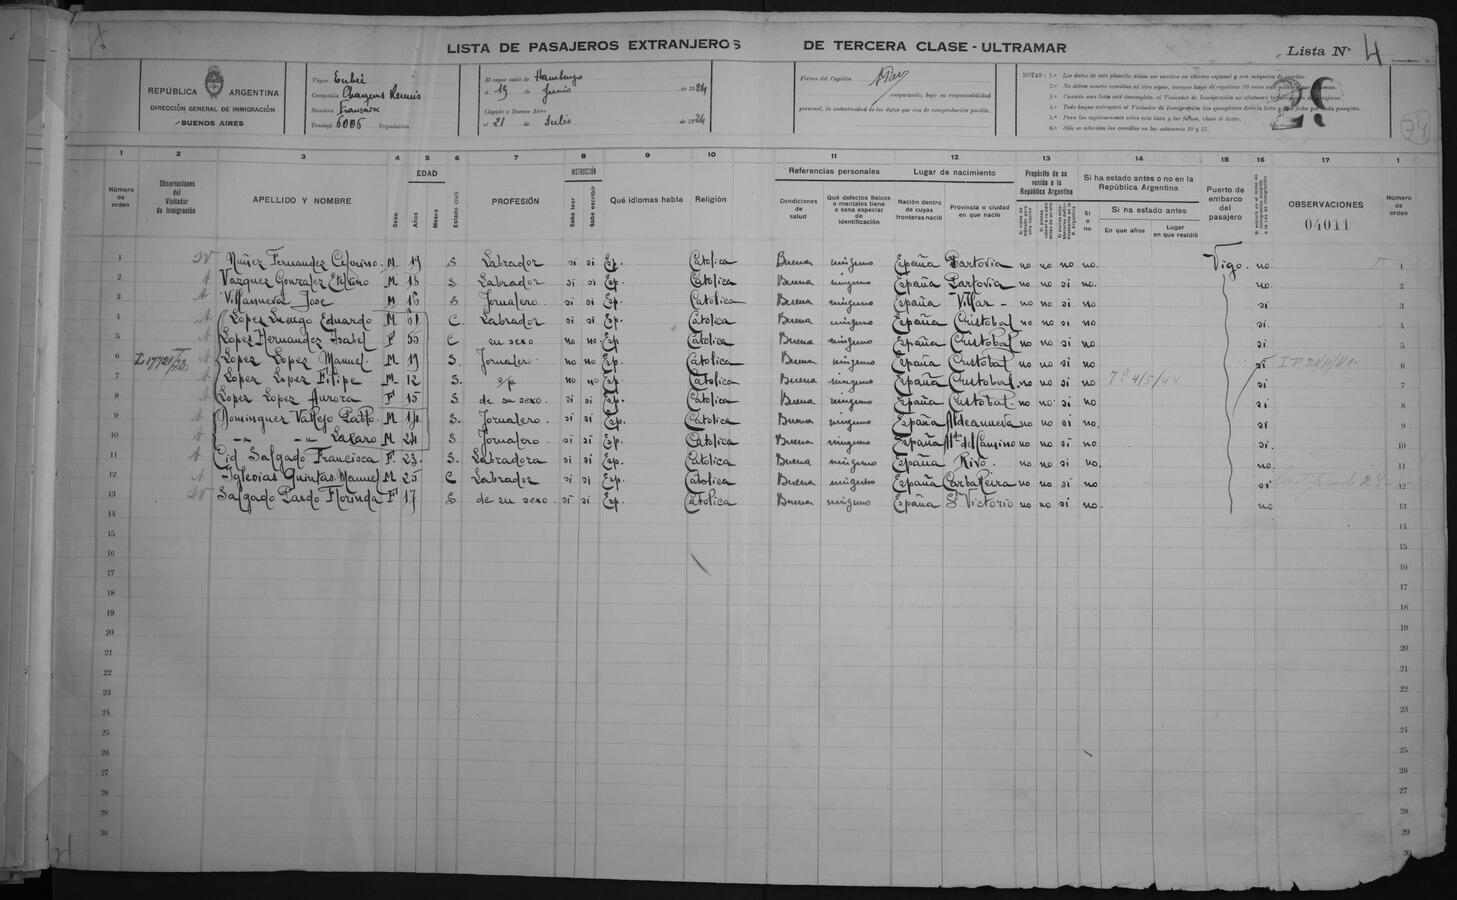 LISTA DE PASAJEROS EXTRANJEROS DE TERCERA CLASE - ULTRAMAR
Lista Nº 4
REPÚBLICA ARGENTINA
DIRECCIÓN GENERAL DE INMIGRACIÓN
BUENOS AIRES
Vapor Eubée
Compañía Chargeurs Reunis
Bandera Francesa
Tonelaje 6006 Tripulación
El vapor salió de Hamburgo
el 19 de Junio de 1924
Llegado a Buenos Aires
el 21 de Julio de 1924
Firma del Capitán
asegurando, bajo su responsabilidad
personal, la autenticidad de los datos que son de comprobación posible.
NOTAS: 1.ª Los datos de esta planilla deben ser escritos en idioma español y con máquina de escribir.
5.ª Para las explicaciones sobre esta lista y las fichas, véase al dorso.
6.ª Sólo se admiten las comillas en las columnas 10 y 15.
29
1 2 3 4 5 6 7 8 9 10 11 12 13 14 15 16 17 1
Número de orden
Observaciones del Visitador de Inmigración
APELLIDO Y NOMBRE
Sexo
EDAD
Años
Meses
Estado civil
PROFESIÓN
INSTRUCCIÓN
Sabe leer
Sabe escribir
Qué idiomas habla
Religión
Referencias personales
Condiciones de salud
Qué defectos físicos o mentales tiene o sena especial de identificación
Lugar de nacimiento
Nación dentro de cuyas fronteras nació
Provincia o ciudad en que nació
Propósito de su venida a la República Argentina
Si ha estado antes o no en la República Argentina
Si o no
Si ha estado antes
En que años
Lugar en que residió
Puerto de embarco del pasajero
OBSERVACIONES
04011
Número de orden
1 Nuñez Fernandez M 19 S Labrador si si Esp. Catolica Buena ninguno España Partovia no no no no. Vigo. no 1
2 A Vazquez Gonzalez M 18 S Labrador si si Esp. Catolica Buena ninguno España Partovia no no si no. no. 2
3 A Villanueva Jose M 16 S Jornalero. si si Esp. Catolica Buena ninguno España Villar - no no si no si 3
4 A Lopez Luengo Eduardo M 61 C. Labrador si si Esp. Catolica Buena ninguno España Cristobal no no si no si. 4
5 A Lopez Hernandez Isabel F 55 C su sexo no no Esp. Catolica Buena ninguno España Cristobal no no si no si. 5
6 A Lopez Lopez Manuel. M 19 S. Jornalero no no Esp. Catolica Buena ninguno España Cristobal no no si no si 6
7 A Lopez Lopez Filipe M 12 S. s/p no no Esp. Catolica Buena ninguno España Cristobal. no no si no 7º 4/5/44 si 7
8 A Lopez Lopez Aurora F 15 S de su sexo. si si Esp. Catolica Buena ninguno España Cristobal. no no si no si 8
9 A Dominguez Vallejo Pablo. M 14 S. Jornalero. si si Esp. Catolica Buena ninguno España Aldeanueva no no si no. si 9
10 A -"- -"- Lazaro M 24 S Jornalero. si si Esp. Catolica Buena ninguno España del Camino no no si no si. 10
11 A Cid Salgado Francisca F. 23. S. Labradora si si Esp. Catolica Buena ninguno España Rivo. no no si no no. 11
12 A Iglesias Quintas Manuel M 25 C Labrador si si Esp. Catolica Buena ninguno España Carballeira no no si no si 12
13 Salgado Pardo Florinda F 17 S de su sexo. si si Esp. Catolica Buena ninguno España Sª Victorio no no si no. no 13
14
15 15
16 16
17 17
18 18
19 19
20 20
21 21
22 22
23 23
24 24
25 25
26 26
27 27
28 28
29 29
30 30